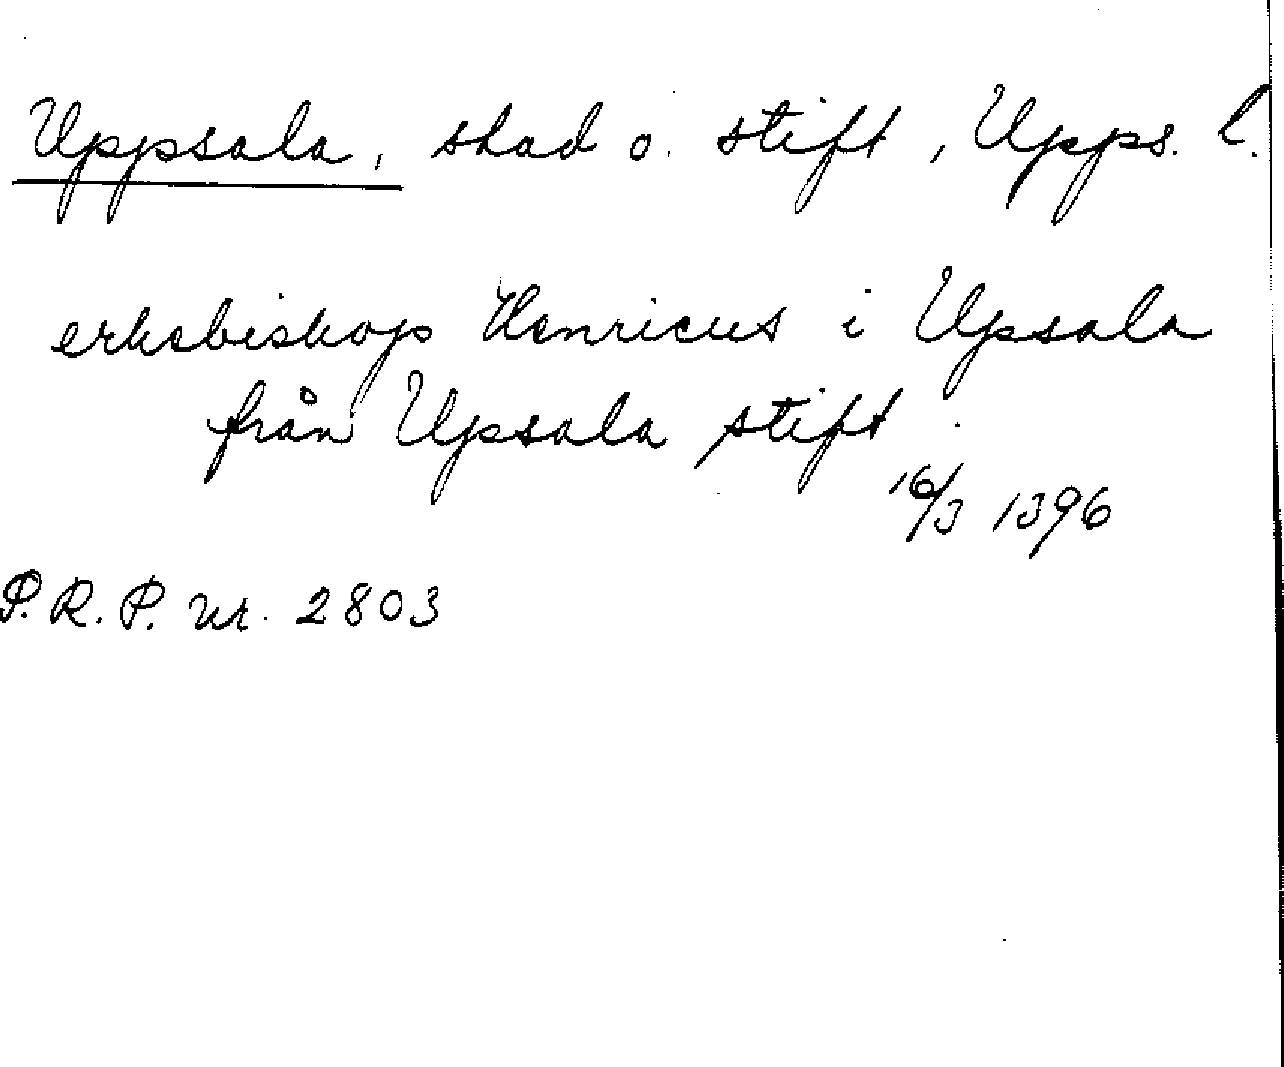 Uppsala, stad o. stift, Upps. l.
erkebiskop Henricus i Upsala
från Upsala stift.
16/3 1396
P.R.P. nr. 2803